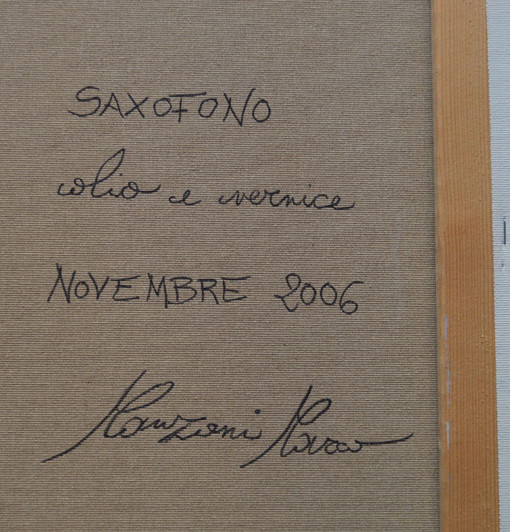 SAXOFONO
olio e vernice
NOVEMBRE 2006
Manzoni